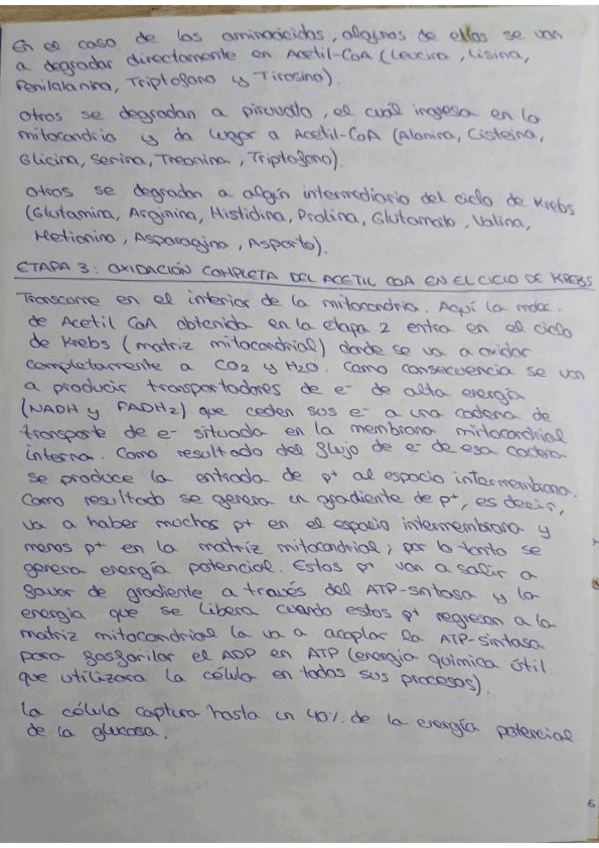 En el caso de los aminoácidos, algunos de ellos se van
a degradar directamente en Acetil-CoA (Leucina, Lisina,
Fenilalanina, Triptofano y Tirosina).
Otros se degradan a piruvato, el cuál ingresa en la
mitocondria y da lugar a Acetil-CoA (Alanina, Cisteína,
Glicina, Serina, Treonina, Triptofano).
Otros se degradan a algún intermediario del ciclo de Krebs
(Glutamina, Arginina, Histidina, Prolina, Glutamato, Valina,
Metionina, Asparagina, Asparto).
ETAPA 3: OXIDACIÓN COMPLETA DEL ACETIL COA EN EL CICLO DE KREBS
Transcurre en el interior de la mitocondria. Aquí la molec.
de Acetil CoA obtenida en la etapa 2 entra en el ciclo
de Krebs (matriz mitocondrial) donde se va a oxidar
completamente a CO2 y H2O. Como consecuencia se van
a producir transportadores de e- de alta energía
(NADH y FADH2) que ceden sus e- a una cadena de
transporte de e- situada en la membrana mitocondrial
interna. Como resultado del flujo de e- de esa cadena
se produce la entrada de p+ al espacio intermembrana.
Como resultado se genera un gradiente de p+, es decir,
va a haber muchos p+ en el espacio intermembrana y
menos p+ en la matriz mitocondrial; por lo tanto se
genera energía potencial. Estos p+ van a salir a
favor de gradiente a través del ATP-sintasa y la
energía que se libera cuando estos p+ regresan a la
matriz mitocondrial la va a acoplar la ATP-sintasa
para fosforilar el ADP en ATP (energía química útil
que utilizara la célula en todos sus procesos).
La célula captura hasta un 40% de la energía potencial
de la glucosa.
6